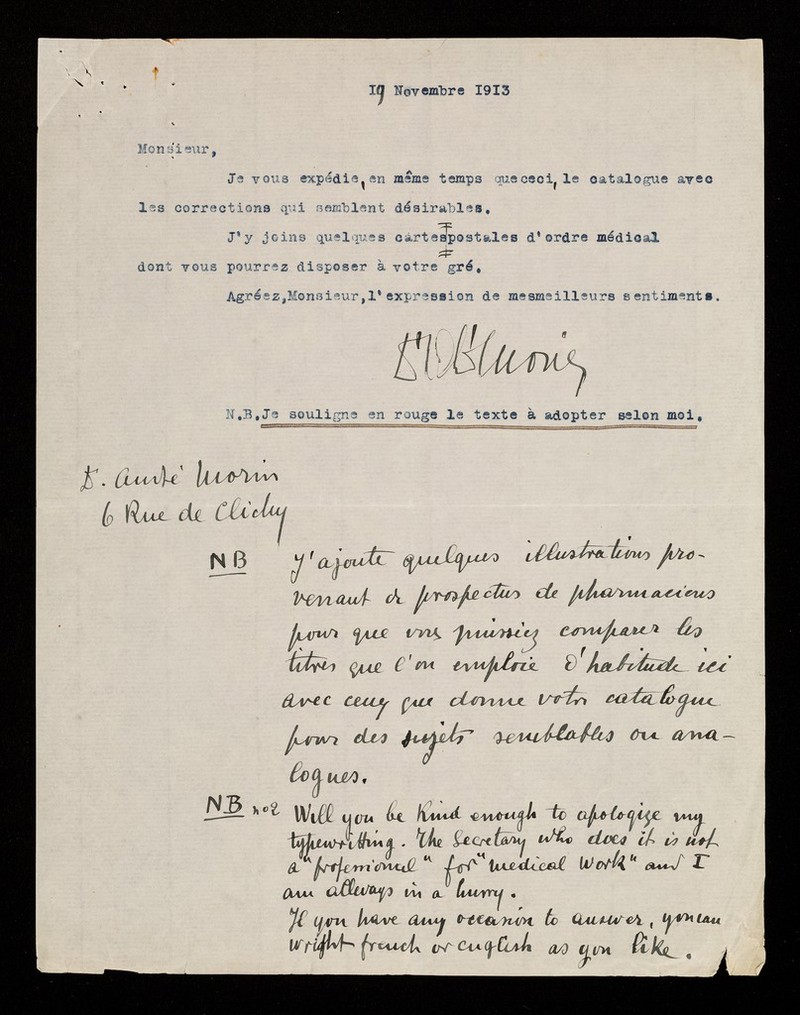 19 Novembre 1913
Monsieur,
Je vous expédie, en même temps que ceci, le catalogue avec
les corrections qui semblent désirables.
J'y joins quelques cartes postales d'ordre médical
dont vous pourrez disposer à votre gré.
Agréez,Monsieur,l'expression de mesmeilleurs sentiments.
N.B.Je souligne en rouge le texte à adopter selon moi.
Dr. André Morin
6 Rue de Clichy
NB J'ajoute quelques illustrations pro-
venant de prospectus de pharmaciens
pour que vous puissiez comparer les
titres que l'on emploie d'habitude ici
avec ceux que donne votre catalogue
pour des sujets semblables ou ana-
logues.
NB no2 Will you be Kind enough to apologize my
typewritting. The Secretary who does it is not
a "professionnel" for "medical Work" and I
am allways in a hurry.
If you have any occasion to answer, you can
wright french or english as you like.